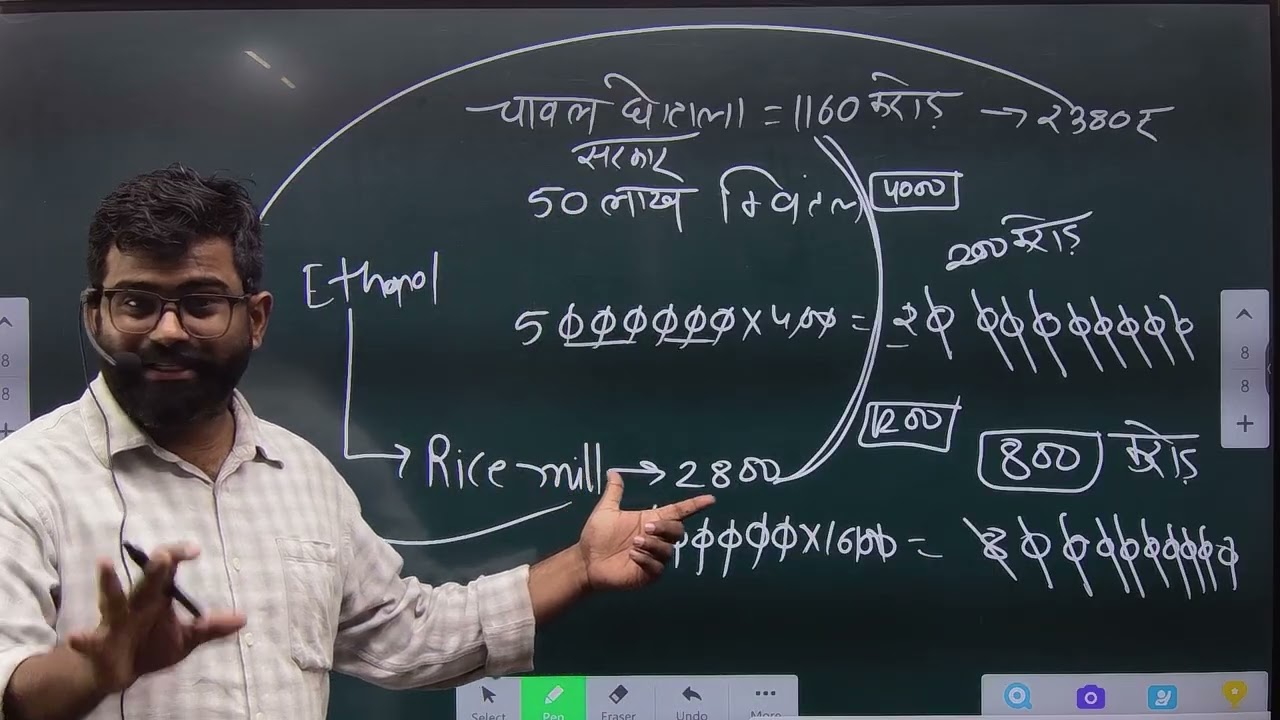 चावल घोटाला = 1160 करोड़ → 2380₹
सरकार
50 लाख क्विंटल 4000
200 करोड़
Ethanol
50000000 x 400 = 20 00000000
1200
Rice mill → 2800 800 करोड़
00000 x 1600 = 8 000000000
8
8
+
8
8
+
Select
Pen
Eraser
Undo
More